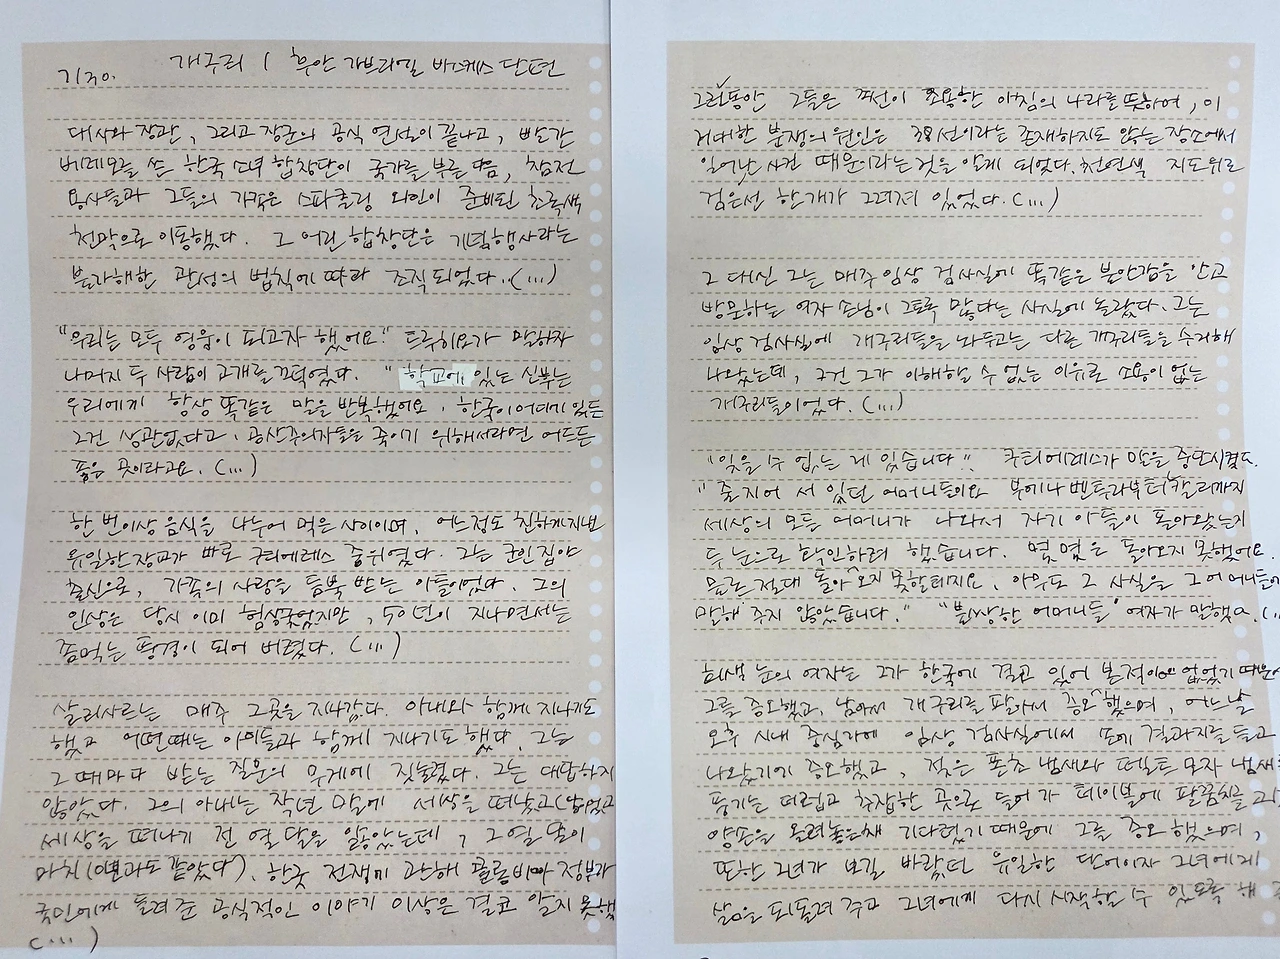 기 30.
개구리 / 후안 가브리엘 바스케스 단편
대사와 장관, 그리고 장군의 공식 연설이 끝나고, 빨간
베레모를 쓴 한국 소녀 합창단이 국가를 부른 다음, 참전
용사들과 그들의 가족은 스파클링 와인이 준비된 초록색
천막으로 이동했다. 그 어린 합창단은 기념행사라는
불가해한 관성의 법칙에 따라 조직되었다.(...)
"우리는 모두 영웅이 되고자 했어요." 트루히요가 말하자
나머지 두 사람이 고개를 끄덕였다. "학교에 있는 신부는
우리에게 항상 똑같은 말을 반복했어요. 한국이 어디에 있든
그건 상관없다고. 공산주의자들을 죽이기 위해서라면 어드든
좋은 곳이라고요. (...)
한 번 이상 음식을 나누어 먹은 사이이며, 어느 정도 친하게 지낸
유일한 장교가 바로 구티에레스 중위였다. 그는 군인 집안
출신으로, 가족의 사랑을 듬뿍 받는 아들이었다. 그의
인상은 당시 이미 험상궂었지만, 50년이 지나면서는
좀먹는 풍경이 되어 버렸다. (...)
살라사르는 매주 그곳을 지나갔다. 아내와 함께 지나기도
했고 어떤 때는 아이들과 함께 지나기도 했다. 그는
그때마다 받는 질문의 무게에 짓눌렸다. 그는 대답하지
않았다. 그의 아내는 작년 말에 세상을 떠났고(
세상을 떠나기 전 열 달을 앓았는데, 그 일 또이
마치 ( 과도 같았다). 한국 전쟁에 관해 콜롬비아 정부가
국민에게 들려준 공식적인 이야기 이상은 결코 알지 못했
(...)
그러는동안 그들은 조선이 조용한 아침의 나라를 뜻하며, 이
거대한 분쟁의 원인은 38선이라는 존재하지도 않는 장소에서
일어난 사건 때문이라는 것을 알게 되었다. 천연색 지도위로
검은선 한개가 그려져 있었다. (...)
그 대신 그는 매주 임상 검사실에 똑같은 불안감을 안고
방문하는 여자 손님이 그토록 많다는 사실에 놀랐다. 그는
임상 검사실에 개구리들을 놔두고는 다른 개구리들을 수거해
나왔는데, 그건 그가 이해할 수 없는 이유로 소용이 없는
개구리들이었다. (...)
"잊을 수 없는 게 있습니다". 구티에레스가 말을 중단시켰다.
"줄지어 서 있던 어머니들이요 부에나벤투라부터 칼리까지
세상의 모든 어머니가 나와서 자기 아들이 돌아왔는지
두 눈으로 확인하려 했습니다. 몇 명은 돌아오지 못했어요.
물론 절대 돌아오지 못할테지요. 아무도 그 사실을 그 어머니들에
말해 주지 않았습니다." "불쌍한 어머니들" 여자가 말했다. (..
회색 눈의 여자는 그가 한국에 결코 있어 본적이 없었기 때문에
그를 증오했고, 남아서 개구리를 팔아서 증오했으며, 어느 날
오후 시내 중심가에 임상 검사실에서 또에 결과지를 들고
나왔기에 증오했고, 젖은 폰초 냄새와 펠트 모자 냄새를
풍기는 더럽고 추잡한 곳으로 들어가 테이블에 팔꿈치를 괴고
양손을 올려놓은채 기다렸기 때문에 그를 증오했으며,
또한 그녀가 오길 바랐던 유일한 단어이자 그녀에게
삶을 되돌려 주고 그녀에게 다시 시작할 수 있도록 해